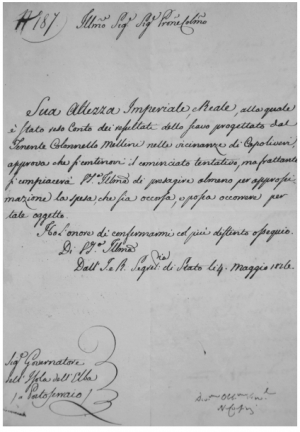 N 187
Illmo Sigr Sigr Prone Colmo
Sua Altezza Imperiale, e Reale, alla quale
è stato reso Conto dei resultati dello scavo progettato dal
Tenente Colonnello Mellini nelle vicinanze di Capoliveri,
approva che si continovi il cominciato tentativo, ma frattanto
si compiacerà V.S. Illma di presagire almeno per approssi-
mazione la spesa che sia occorsa, o possa occorrere per
tale oggetto.
Ho l'onore di confermarmi col più distinto ossequio.
Di V.S. Illma
Dall' I. e R. Segria di Stato li 4. Maggio 1816.
Sigr Governatore
dell' Isola dell' Elba
(a Portoferraio)